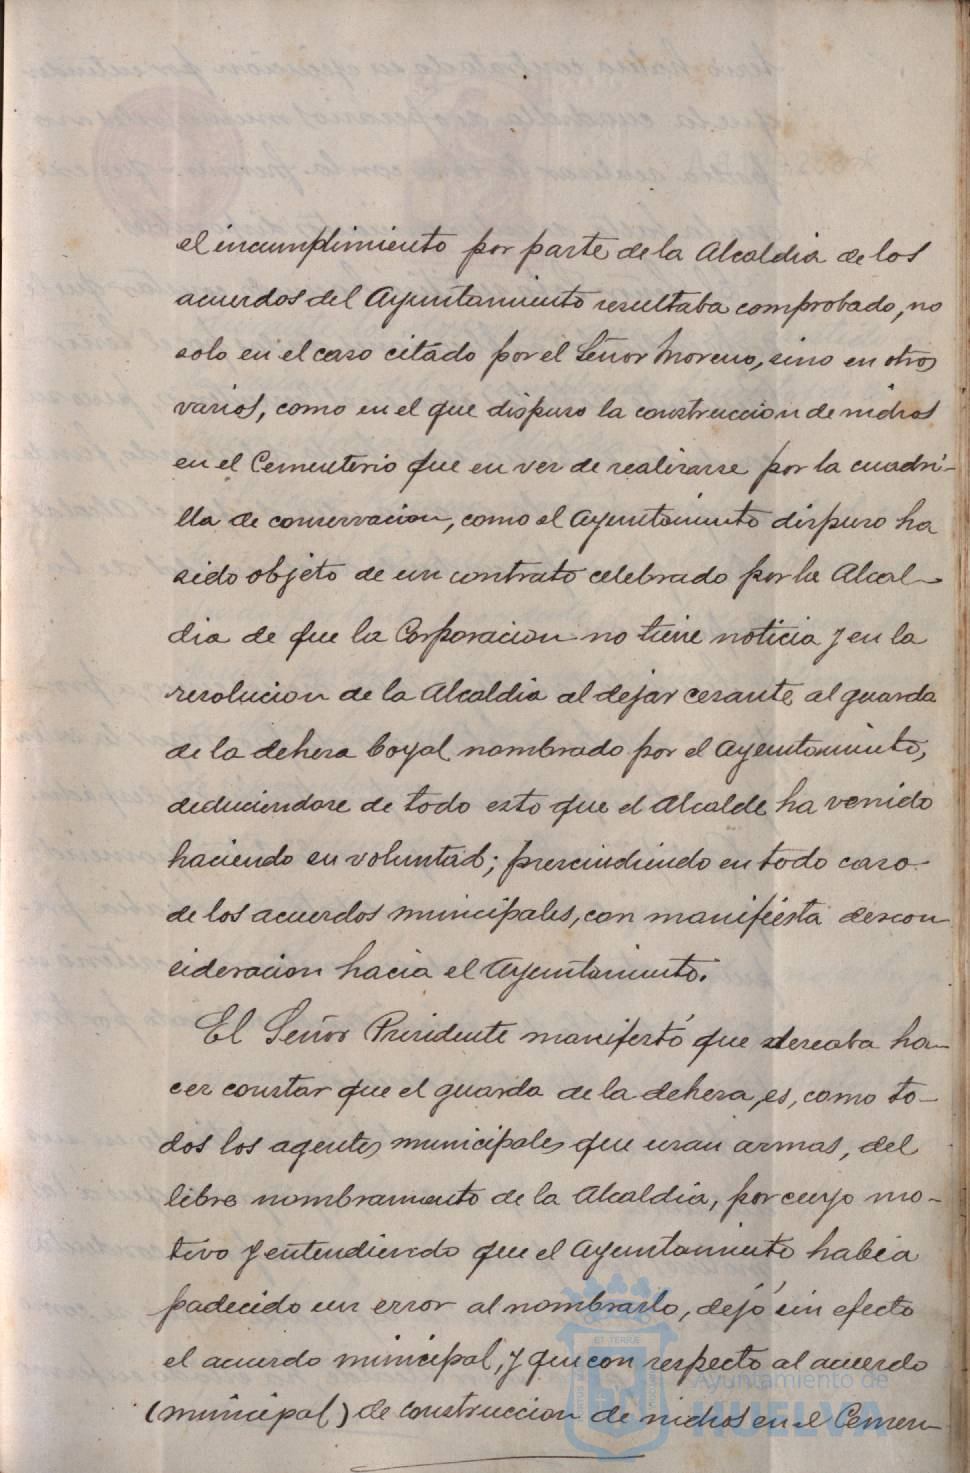 el incumplimiento por parte de la Alcaldia de los
acuerdos del Ayuntamiento resultaba comprobado, no
solo en el caso citado por el Señor Moreno, sino en otros
varios, como en el que dispuso la construccion de nichos
en el Cementerio que en vez de realizarse por la cuadri-
lla de conservacion, como el Ayuntamiento dispuso ha
sido objeto de un contrato celebrado por la Alcal-
dia de que la Corporacion no tiene noticia y en la
resolucion de la Alcaldia al dejar cesante al guarda
de la dehesa boyal nombrado por el Ayuntamiento,
deduciendose de todo esto que el Alcalde ha venido
haciendo su voluntad; prescindiendo en todo caso
de los acuerdos municipales, con manifiesta descon
sideracion hacia el Ayuntamiento.
El Señor Presidente manifestó que deseaba ha-
cer constar que el guarda de la dehesa, es, como to-
dos los agentes municipales que usan armas, del
libre nombramiento de la Alcaldia, por cuyo mo-
tivo y entendiendo que el Ayuntamiento habia
padecido un error al nombrarlo, dejó sin efecto
el acuerdo municipal, y que con respecto al acuerdo
(municipal) de construccion de nichos en el Cemen-
Ayuntamiento de
HUELVA